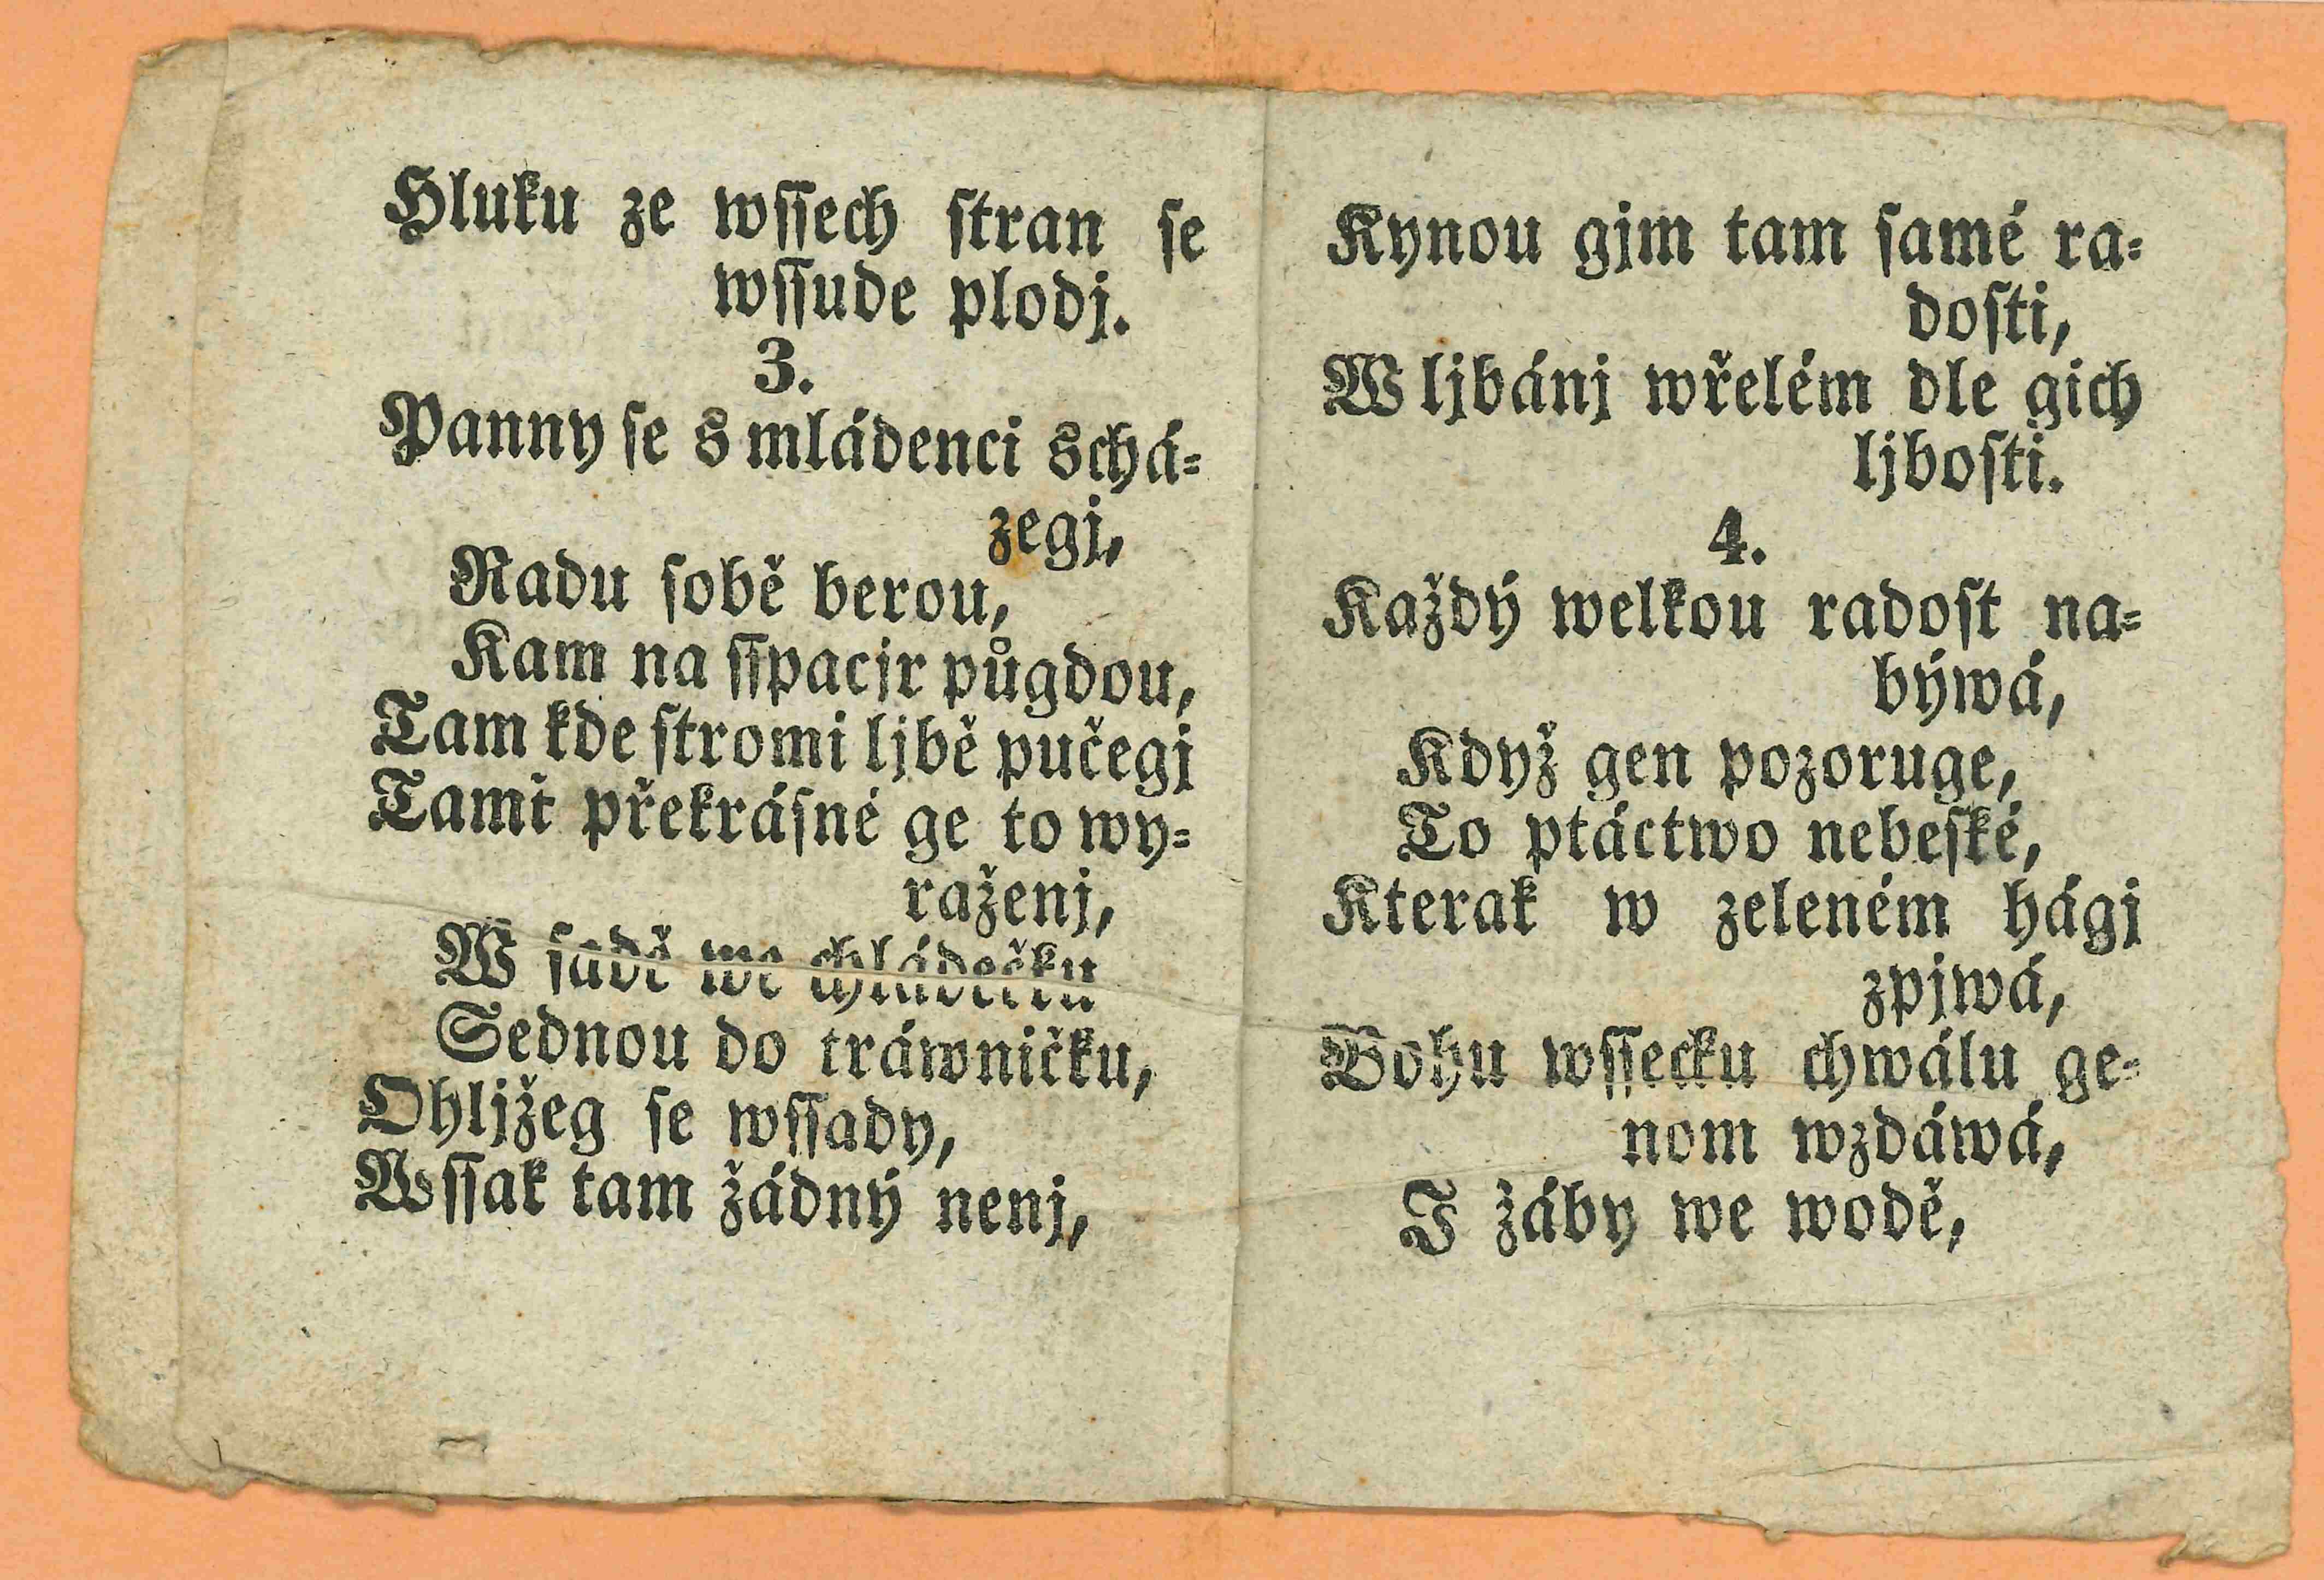 Hluku ze wſſech ſtran ſe
wſſude plodj.
3.
Panny ſe s mládenci schá⸗
zegj,
Radu ſobě berou,
Kam na ſſpacjr půgdou,
Tam kde ſtromi ljbě pučegj
Tamť překráſné ge to wy⸗
raženj,
W ſadě we chládečku
Sednou do tráwničku,
Ohljžeg ſe wſſady,
Wſſak tam žádný nenj,
Kynou gjm tam ſamé ra⸗
doſti,
W ljbánj wřelém dle gich
ljboſti.
4.
Každý welkou radoſt na⸗
býwá,
Když gen pozoruge,
To ptáctwo nebeſké,
Kterak w zeleném hágj
zpjwá,
Bohu wſſecku chwálu ge⸗
nom wzdáwá,
I žáby we wodě,